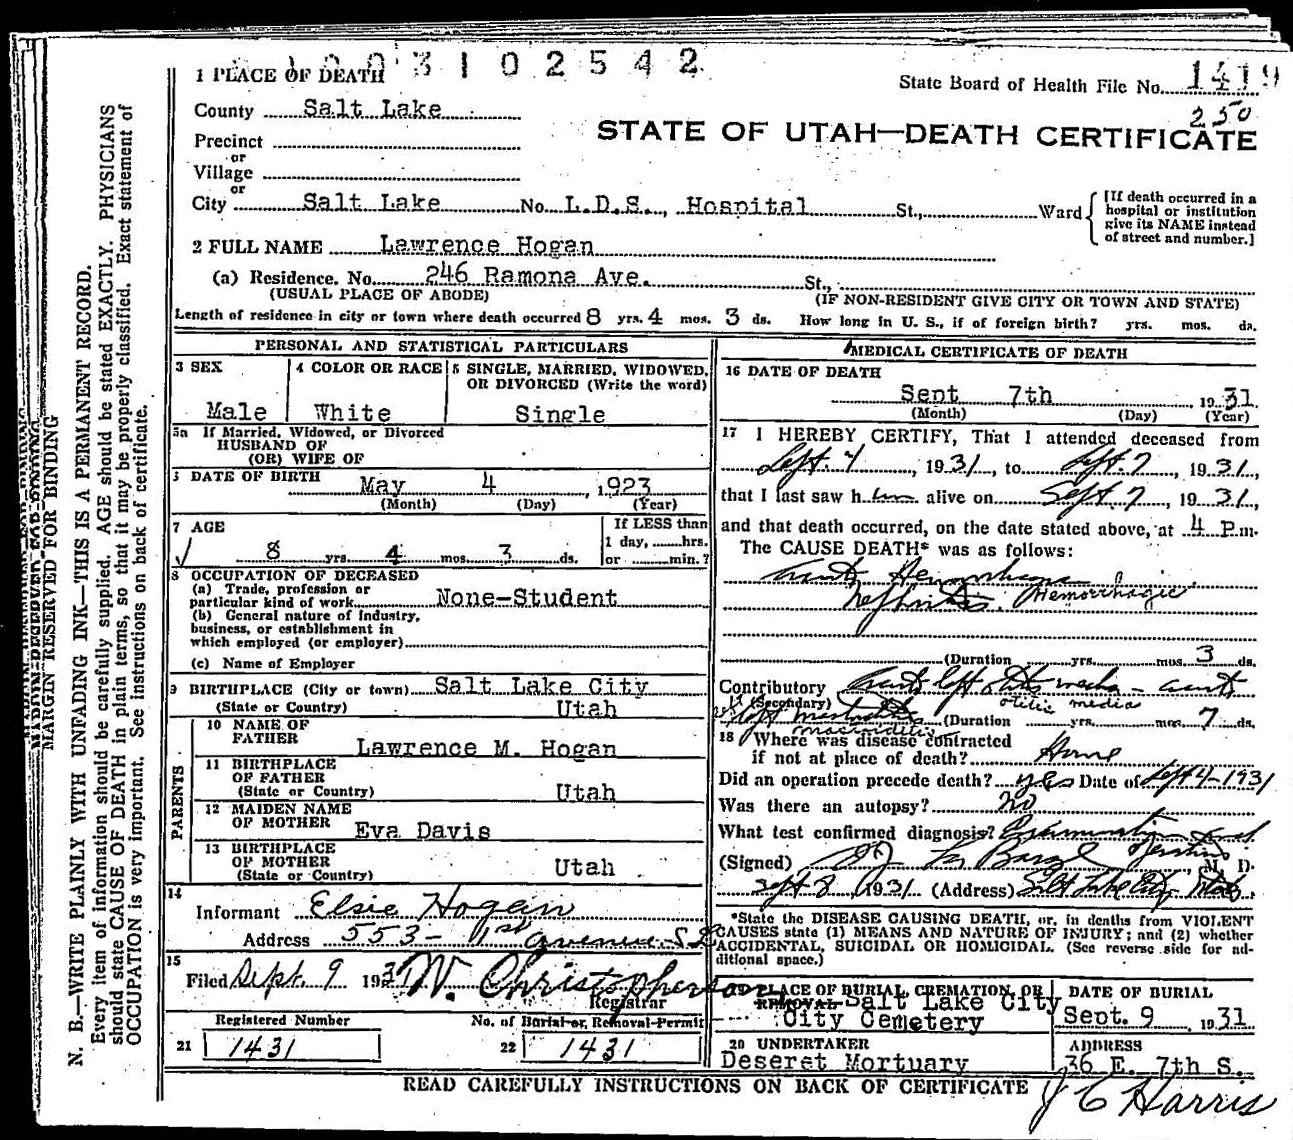 3 1 0 2 5 4 2
1 PLACE OF DEATH
State Board of Health File No. 1419
250
County Salt Lake
STATE OF UTAH—DEATH CERTIFICATE
Precinct
or
Village
or
City Salt Lake No. L.D.S., Hospital St., Ward
[If death occurred in a hospital or institution give its NAME instead of street and number.]
2 FULL NAME Lawrence Hogan
(a) Residence. No. 246 Ramona Ave. St.,
(USUAL PLACE OF ABODE) (IF NON-RESIDENT GIVE CITY OR TOWN AND STATE)
Length of residence in city or town where death occurred 8 yrs. 4 mos. 3 ds. How long in U. S., if of foreign birth? yrs. mos. ds.
PERSONAL AND STATISTICAL PARTICULARS
3 SEX
Male
4 COLOR OR RACE
White
5 SINGLE, MARRIED, WIDOWED, OR DIVORCED (Write the word)
Single
5a If Married, Widowed, or Divorced
HUSBAND OF
(OR) WIFE OF
DATE OF BIRTH May 4, 1923
(Month) (Day) (Year)
7 AGE
8 yrs. 4 mos. 3 ds.
If LESS than
1 day, hrs.
or min.?
8 OCCUPATION OF DECEASED
(a) Trade, profession or
particular kind of work None-Student
(b) General nature of industry,
business, or establishment in
which employed (or employer)
(c) Name of Employer
9 BIRTHPLACE (City or town) Salt Lake City
(State or Country) Utah
PARENTS
10 NAME OF
FATHER Lawrence M. Hogan
11 BIRTHPLACE
OF FATHER
(State or Country) Utah
12 MAIDEN NAME
OF MOTHER Eva Davis
13 BIRTHPLACE
OF MOTHER
(State or Country) Utah
14
Informant Elsie Hogan
Address 553- 1st Avenue S L
15
Filed Sept. 9 1931 W. Christopherson
Registrar
Registered Number
21 1431
No. of Burial or Removal Permit
22 1431
MEDICAL CERTIFICATE OF DEATH
16 DATE OF DEATH
Sept 7th 1931
(Month) (Day) (Year)
17 I HEREBY CERTIFY, That I attended deceased from
Sept. 4, 1931, to Sept. 7, 1931,
that I last saw him alive on Sept. 7, 1931,
and that death occurred, on the date stated above, at 4 P.m.
The CAUSE DEATH* was as follows:
Acute Hemorrhagic
Nephritis. Hemorrhagic
(Duration yrs. mos. 3 ds.
Contributory Acute left otitis media - acute
(Secondary) otitic media
left mastoiditis (Duration yrs. mos. 7 ds.
mastoiditis
18 Where was disease contracted
if not at place of death? Home
Did an operation precede death? yes Date of Sept 4-1931
Was there an autopsy? no
What test confirmed diagnosis? Examination and
(Signed) M. D.
Sept 8, 1931 (Address) Salt Lake City Utah.
*State the DISEASE CAUSING DEATH, or, in deaths from VIOLENT
CAUSES state (1) MEANS AND NATURE OF INJURY; and (2) whether
ACCIDENTAL, SUICIDAL OR HOMICIDAL. (See reverse side for additional space.)
19 PLACE OF BURIAL, CREMATION, OR
REMOVAL Salt Lake City
City Cemetery
DATE OF BURIAL
Sept. 9, 1931
20 UNDERTAKER
Deseret Mortuary
ADDRESS
36 E. 7th S.
READ CAREFULLY INSTRUCTIONS ON BACK OF CERTIFICATE
J C Harris
MARGIN RESERVED FOR BINDING
N. B.—WRITE PLAINLY WITH UNFADING INK—THIS IS A PERMANENT RECORD.
Every item of information should be carefully supplied. AGE should be stated EXACTLY. PHYSICIANS
should state CAUSE OF DEATH in plain terms, so that it may be properly classified. Exact statement of
OCCUPATION is very important. See instructions on back of certificate.